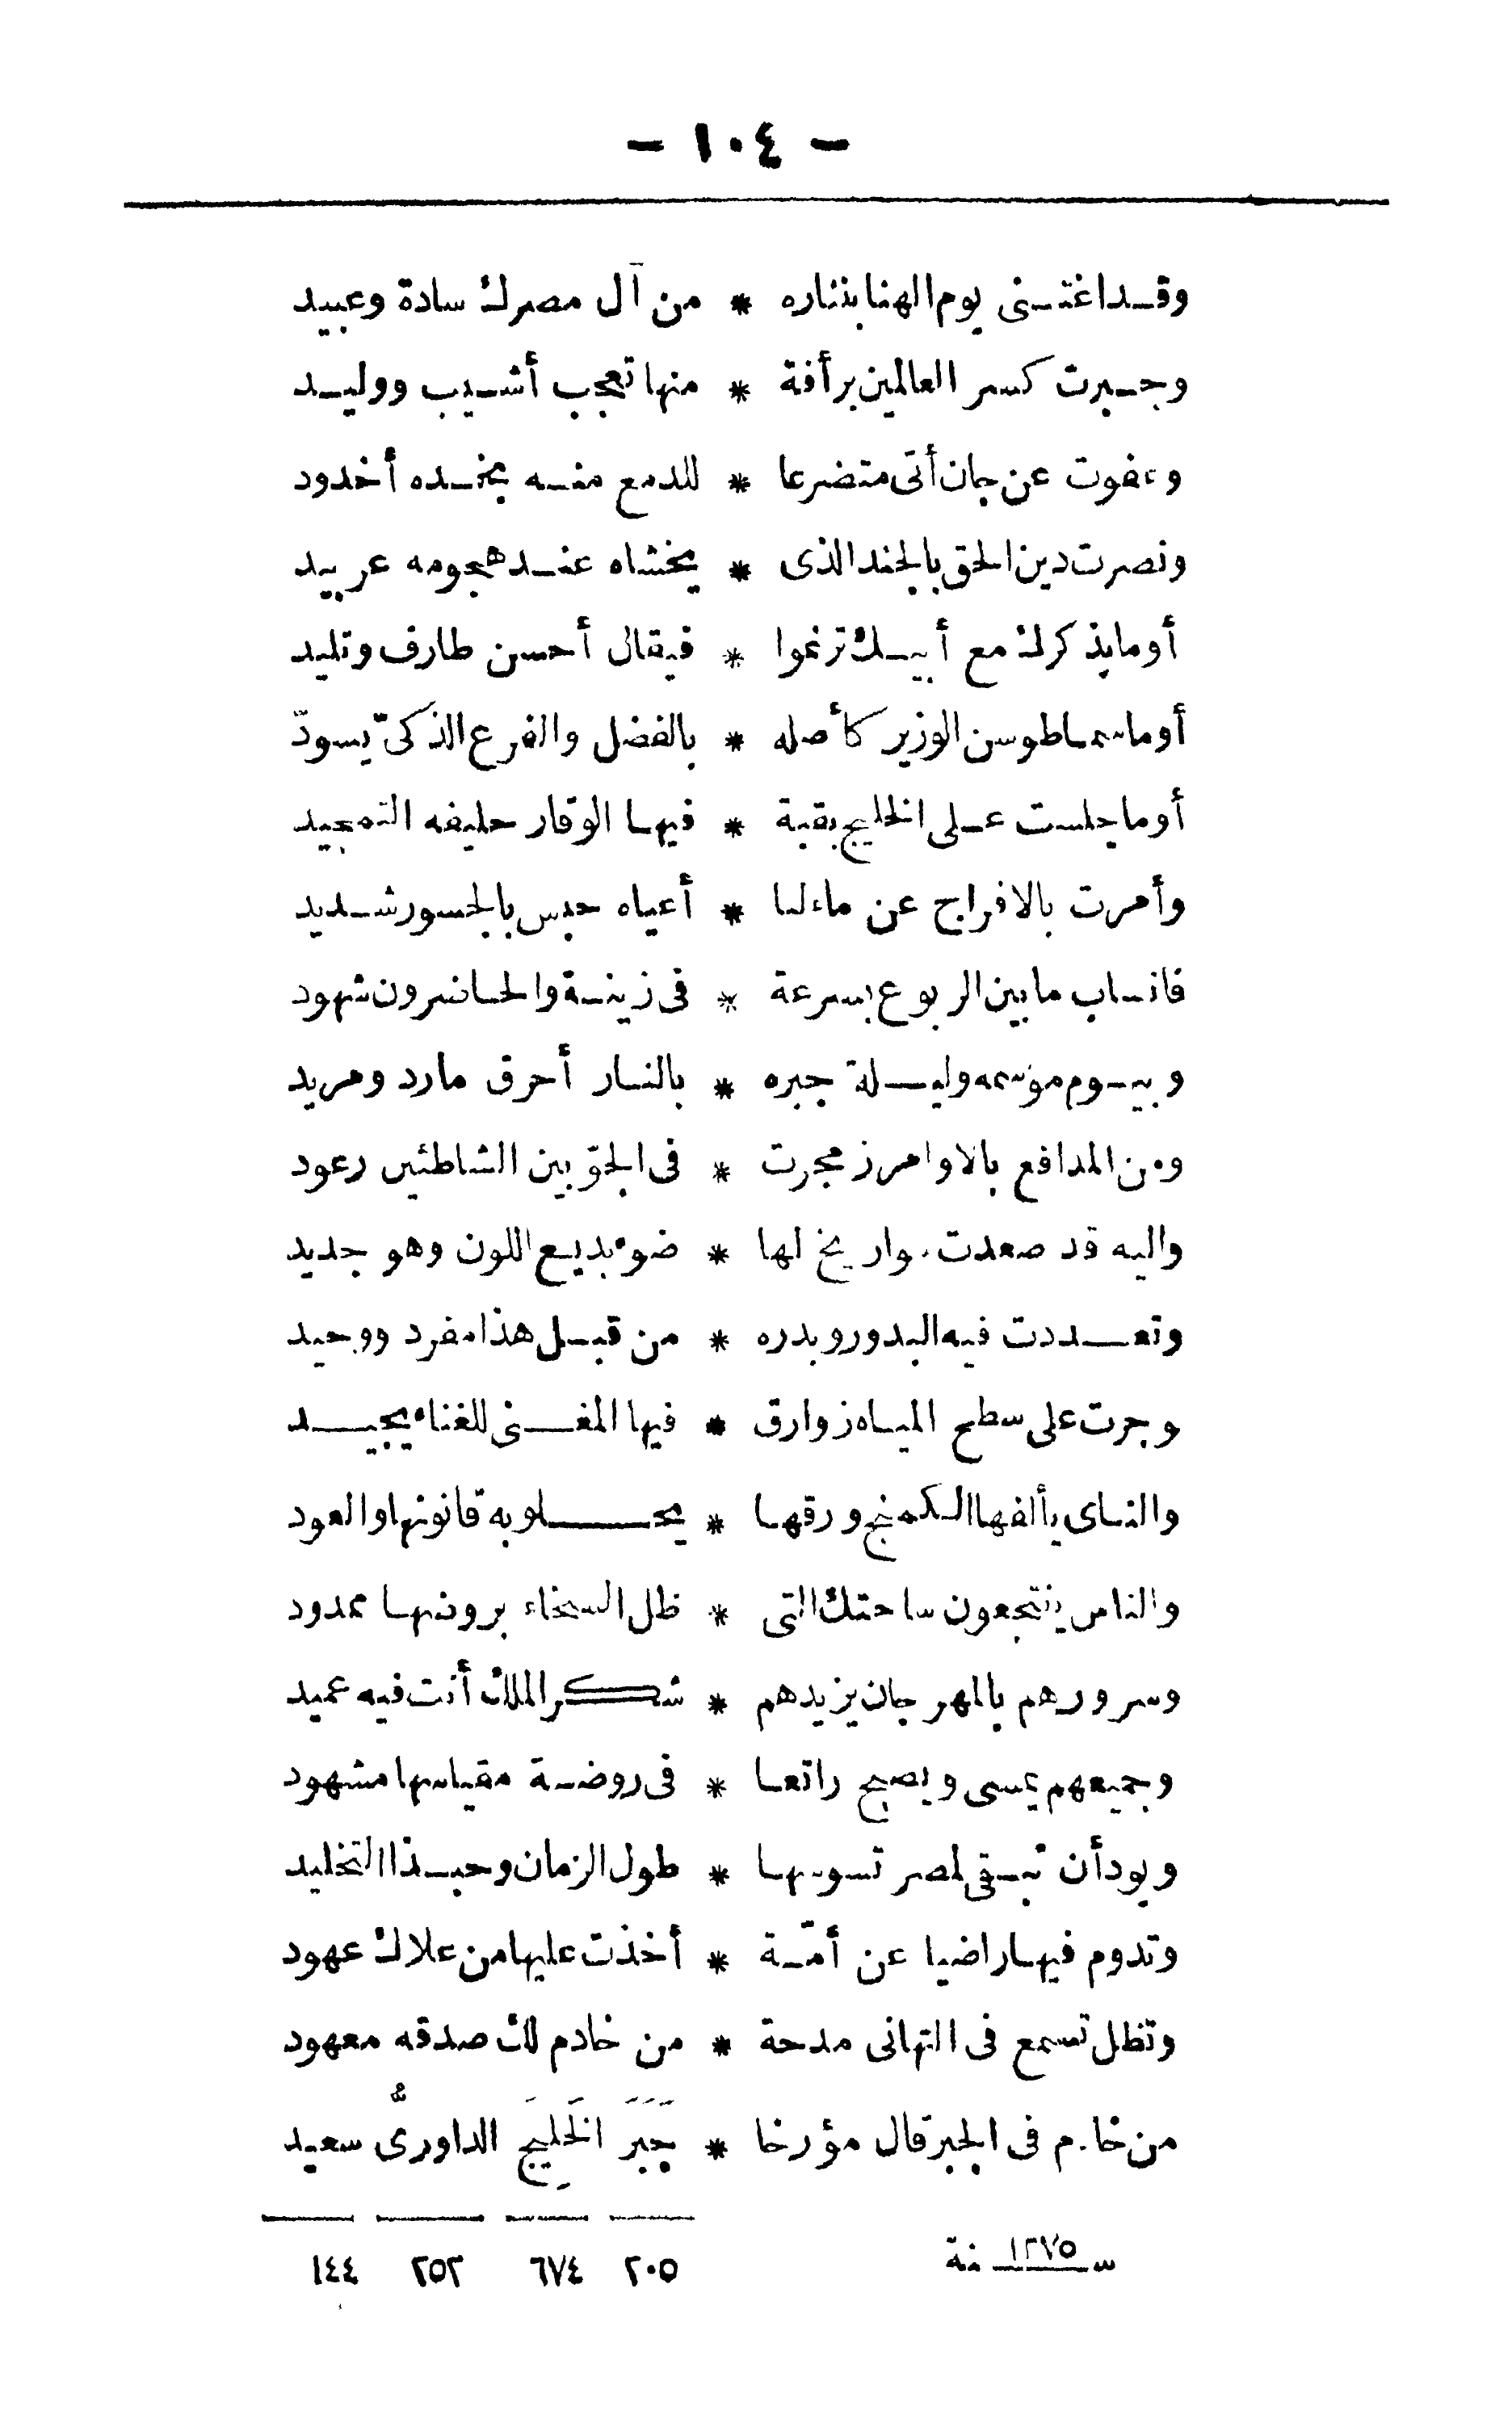 - ١٠٤ -
وقد اغتنى يوم الهنا بنثاره * من آل مصرك سادة وعبيد
وجبرت كسر العالمين برأفة * منها تعجب أشيب ووليد
وعفوت عن جان أتى متضرعا * للدمع منه بخده أخدود
ونصرت دين الحق بالجند الذى * يخشاه عند هجومه عربيد
أوما بذكرك مع أبيك ترنموا * فيقال أحسن طارف وتليد
أوما سما طوسن الوزير كأصله * بالفضل والفرع الذكىّ يسودّ
أوما جلست على الخليج بقبة * فيها الوقار حليفه التمجيد
وأمرت بالافراج عن ماء لما * أعياه حبس بالجسور شديد
فانساب ما بين الربوع بسرعة * فى زينة والحاضرون شهود
وبيوم موسمه وليلة جبره * بالنار أحرق مارد ومريد
ومن المدافع بالاوامر زمجرت * فى الجوّ بين الشاطئين رعود
واليه قد صعدت واريخ لها * ضوء بديع اللون وهو جديد
وتعددت فيه البدور وبدره * من قبل هذا مفرد ووحيد
وجرت على سطح المياه زوارق * فيها المغنى للغناء يجيد
والناى يألفها الكمنج ورقها * يحلو به قانونها والعود
والناس ينتجعون ساحتك التى * ظل السخاء بروضها ممدود
وسرورهم بالمهرجان يزيدهم * شكر الملك أنت فيه عميد
وجميعهم يمسى ويصبح راتعا * فى روضة مقياسها مشهود
ويود أن تبقى لمصر تسوسها * طول الزمان وحبذا التخليد
وتدوم فيها راضيا عن أمّة * أخذت عليها من علاك عهود
وتظل تسمع فى التهانى مدحة * من خادم لك صدقه معهود
من خادم فى الجبر قال مؤرخا * جَبَرَ الخَلِيجَِ الداورىُّ سعيد
سنة ١٢٧٥ ٢٠٥ ٦٧٤ ٢٥٢ ١٤٤